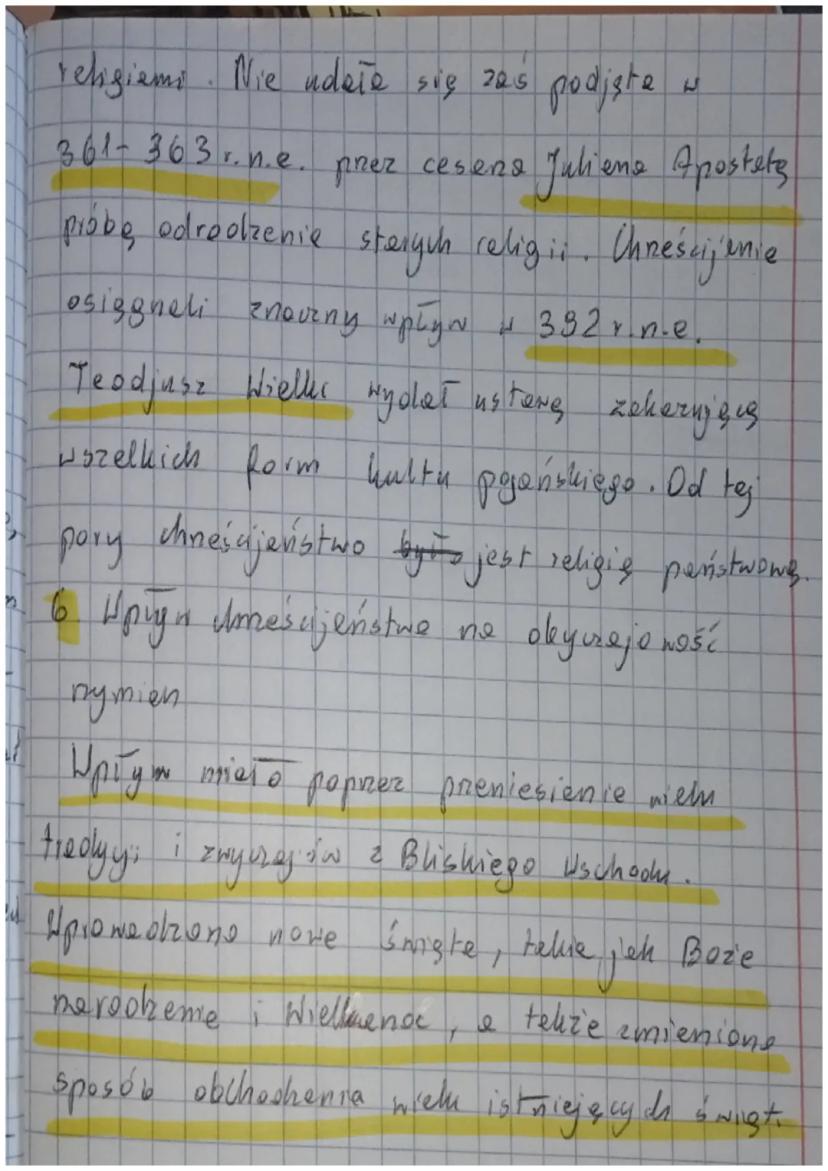 religiami. Nie udała się zaś podjęta w
361-363 r.n.e. przez cesara Juliana Apostatę
próbę odrodzenie starych religii. Chrześcijanie
osiągneli znaczny wpływ w 392 r.n.e.
Teodjusz Wielki wydał ustawę zakazującą
wszelkich form kultu pogańskiego. Od tej
pory chrześcijaństwo było jest religią państwową.
6 Wpływ chrześcijaństwa na obyczajowość
rzymian
Wpływ miało poprzez przeniesienie wielu
tradycji i zwyczajów z Bliskiego Wschodu.
Wprowadzono nowe święta, takie jak Boże
narodzenie i Wielkanoc, a także zmieniono
sposób obchodzenia wielu istniejących świąt.